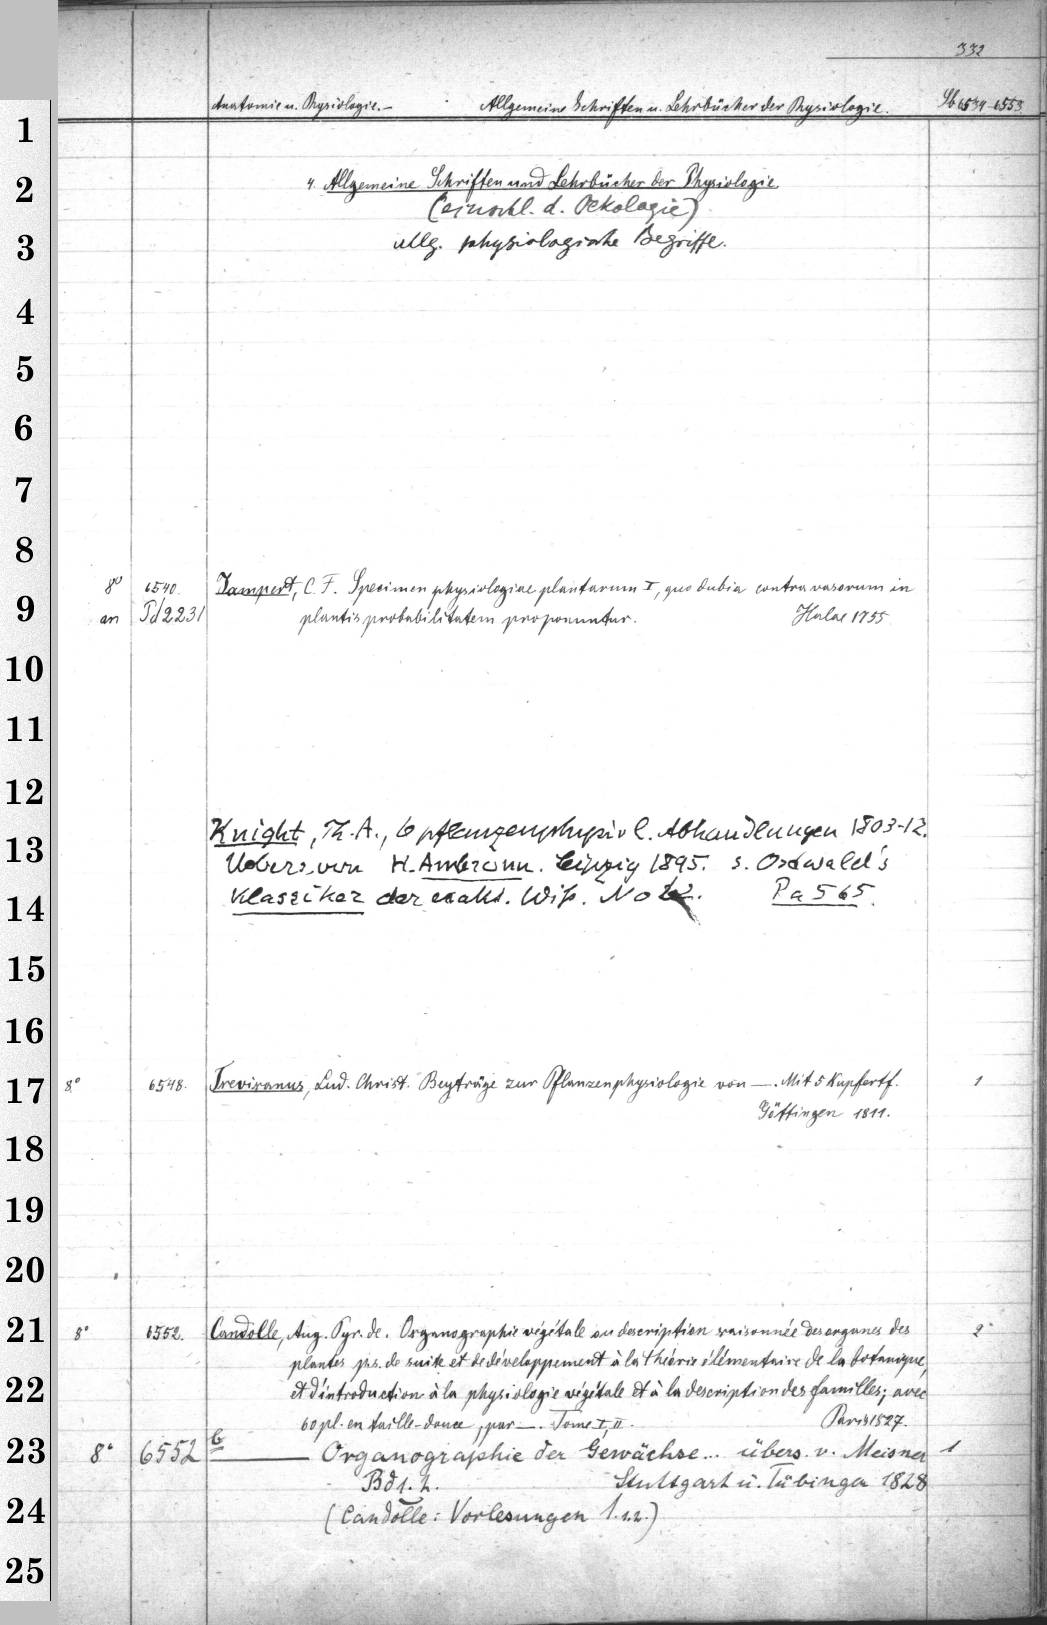 332
Anatomie u. Physiologie. — Allgemeine Schriften u. Lehrbücher der Physiologie. Sb 6534–6553
4. Allgemeine Schriften und Lehrbücher der Physiologie
(einschl. d. Oekologie)
allg. physiologische Begriffe.
1
2
3
4
5
6
7
8
9
10
11
12
13
14
15
16
17
18
19
20
21
22
23
24
25
8° 6540. Jampert, C. F. Specimen physiologiae plantarum I, quo dubia contra vasorum in
an Pd 2231 plantis probabilitatem proponuntur. Halae 1755
Knight, Th. A., 6 pflanzenphysiol. Abhandlungen 1803-12.
Uebers. von H. Ambronn. Leipzig 1895. s. Ostwald's
Klassiker der exakt. Wiss. No 62. Pa 565.
8° 6548. Treviranus, Lud. Christ. Beyträge zur Pflanzenphysiologie von —. Mit 5 Kupfertf. 1
Göttingen 1811.
8° 6552. Candolle, Aug. Pyr. de. Organographie végétale ou description raisonnée des organes des 2
plantes p.s. de suite et de développement à la théorie élémentaire de la botanique,
et d'introduction à la physiologie végétale et à la description des familles; avec
60 pl. en taille-douce, par —. Tome I, II. Paris 1827.
8° 6552 b — Organographie der Gewächse... übers. v. Meisner 1
Bd 1. 2. Stuttgart u. Tübingen 1828
(Candolle: Vorlesungen 1. u. 2.)